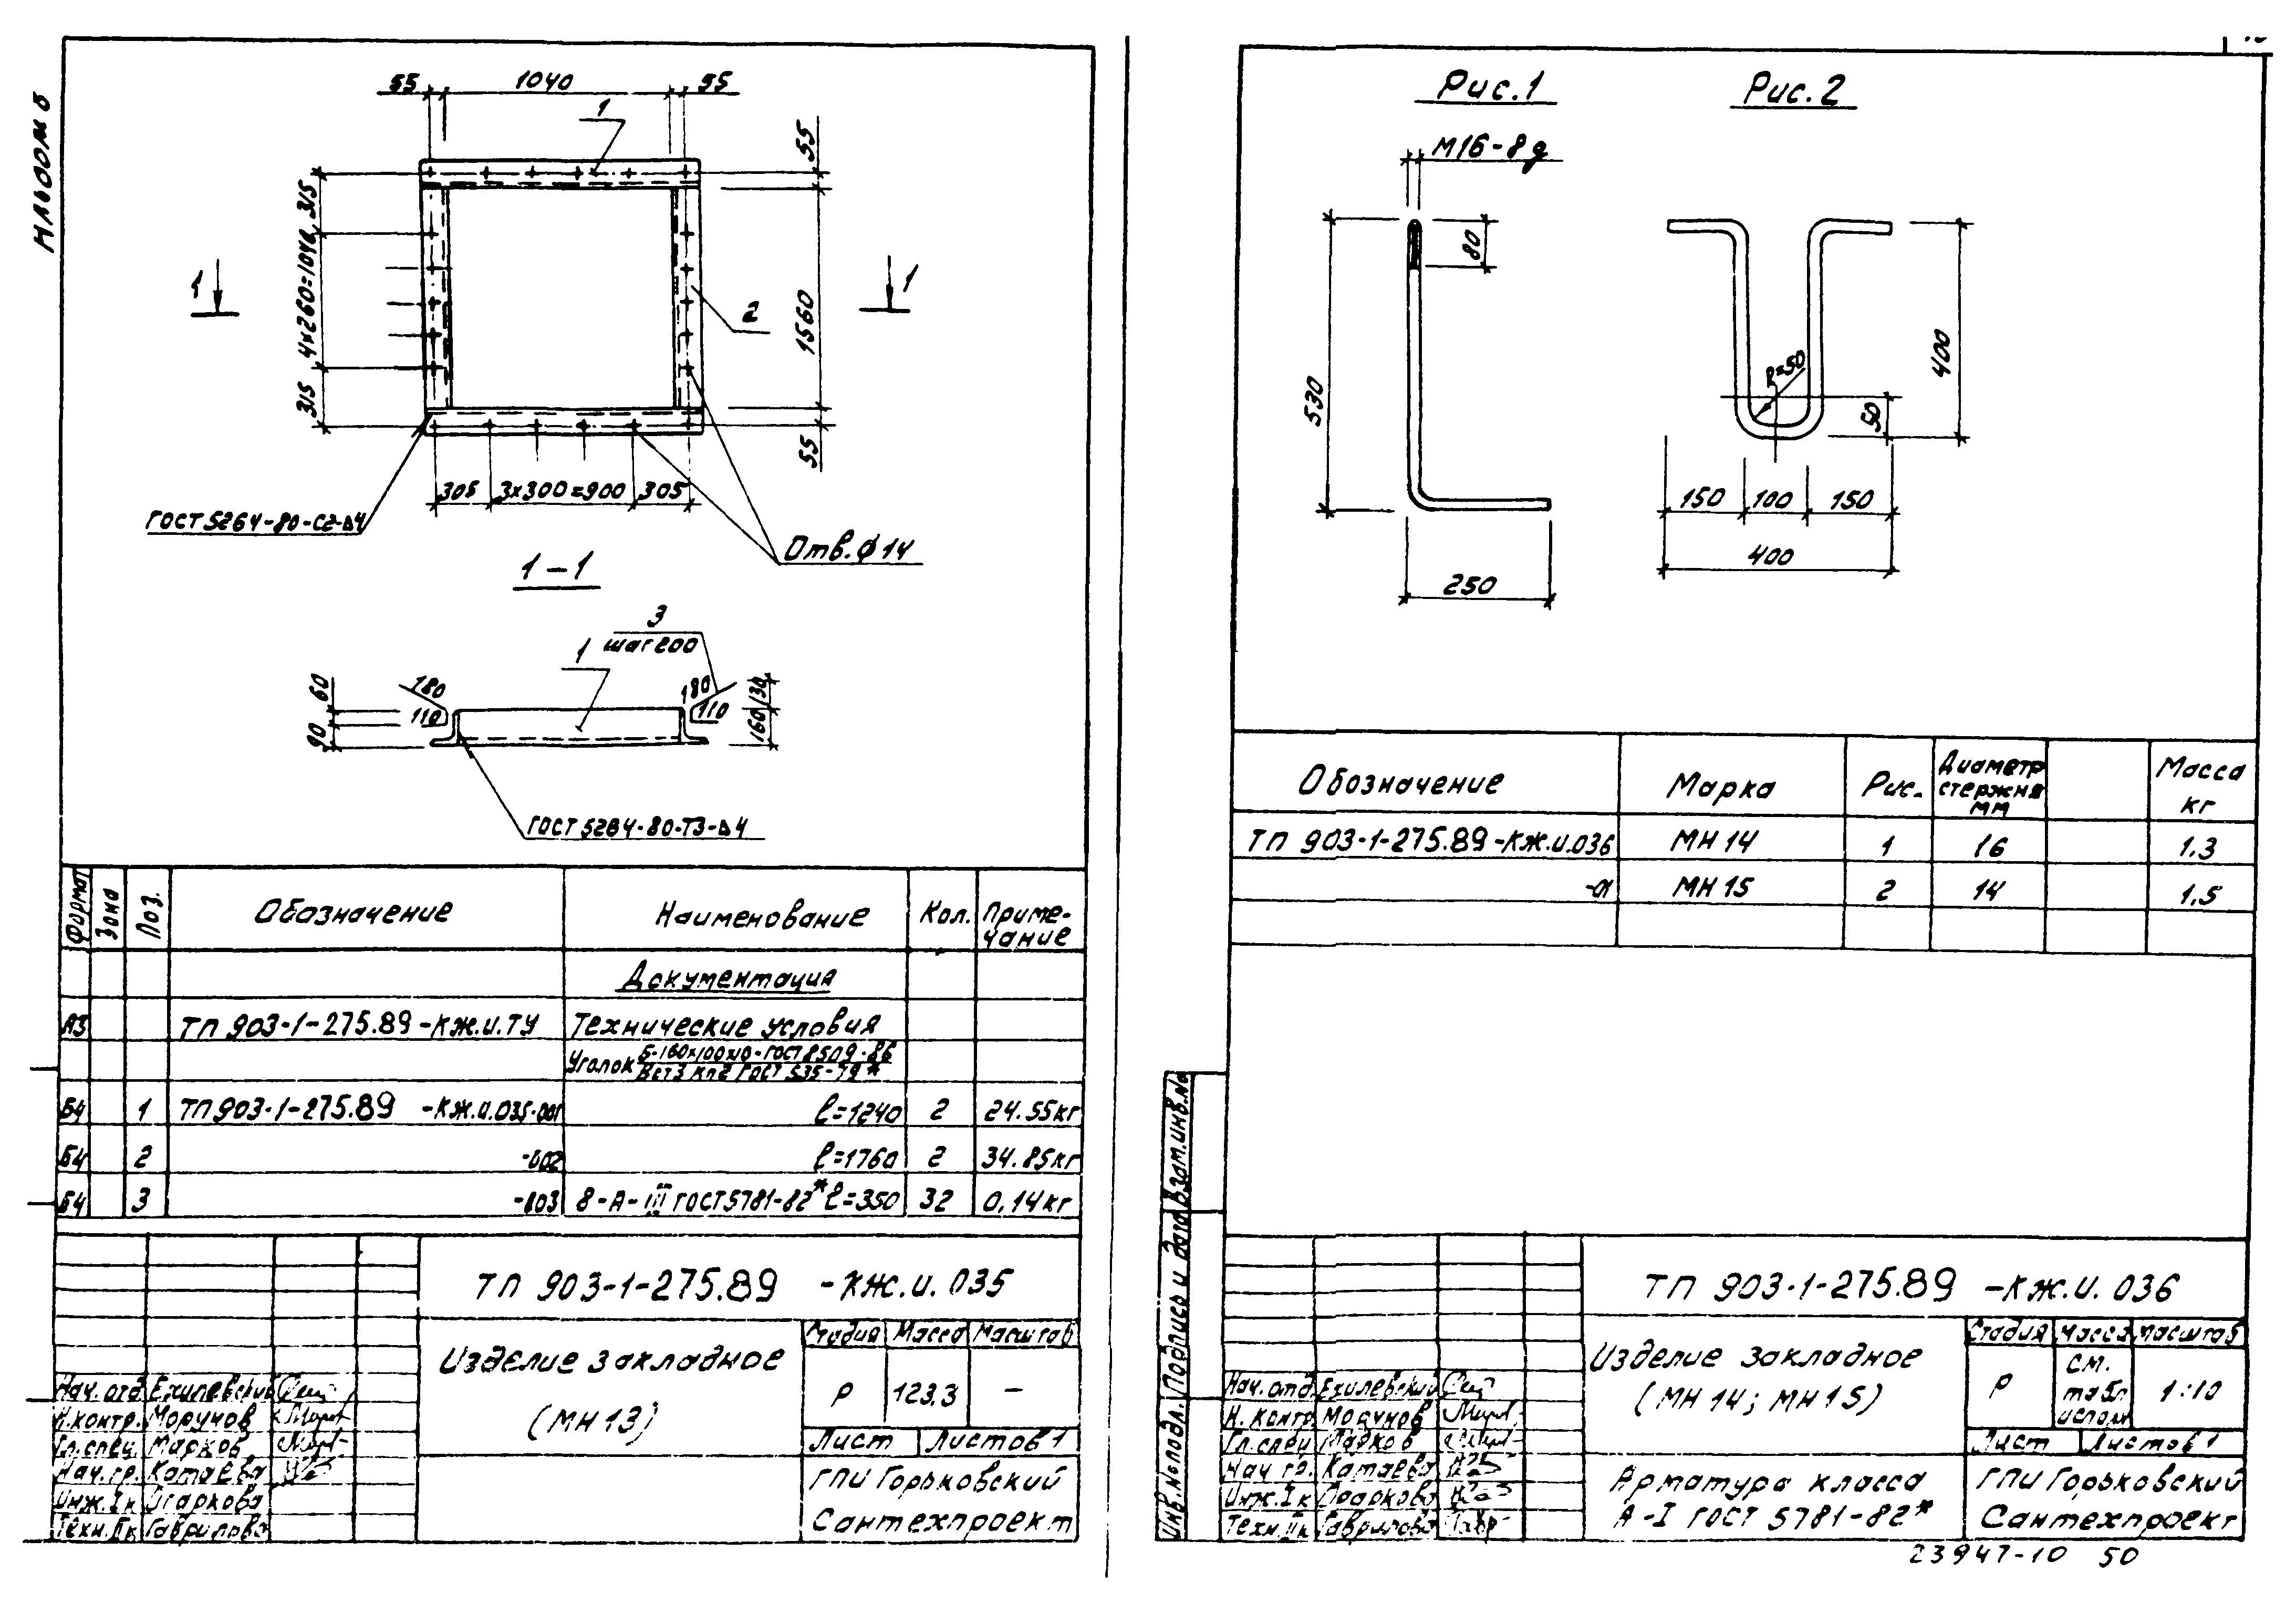 Альбом 6
55 1040 55
1
55
315
4×260=1040
315
1 1
2
1560
55
305 3×300=900 305
ГОСТ 5264-80-С2-Δ4
Отв. ϕ14
1-1
3
шаг 200
1
60
180
110
90
180
110
130
160
ГОСТ 5264-80-Т3-Δ4
Формат Зона Поз. Обозначение Наименование Кол. Приме-
чание
Документация
А3 ТП 903-1-275.89-КЖ.И.ТУ Технические условия
Уголок Б-160×100×10-ГОСТ 8509-86
ВСт3 кп2 ГОСТ 535-79*
Б4 1 ТП 903-1-275.89 -КЖ.И.035-001 ℓ=1240 2 24.55кг
Б4 2 -002 ℓ=1760 2 34.85кг
Б4 3 -003 8-А-III ГОСТ 5781-82* ℓ=350 32 0,14кг
ТП 903-1-275.89 -КЖ.И. 035
Изделие закладное
(МН 13)
Стадия Масса Масштаб
Р 123,3 —
Лист Листов 1
ГПИ Горьковский
Сантехпроект
Нач. отд. Ехилевский
Н.контр. Моругов
Гл.спец. Марков
Нач.гр. Катаева
Инж.Iк Огаркова
Техн.IIк Гаврилова
Рис.1 Рис.2
М16-8g
530
80
250
R=50
400
50
150 100 150
400
Обозначение Марка Рис. Диаметр
стержня
мм
Масса
кг
ТП 903-1-275.89-КЖ.И.036 МН 14 1 16 1.3
-01 МН 15 2 14 1.5
Инв.№подл. Подпись и дата Взам.инв.№
ТП 903-1-275.89 -КЖ.И. 036
Изделие закладное
(МН 14; МН 15)
Стадия Масса Масштаб
Р см.
табл
исполн
1:10
Лист Листов 1
Арматура класса
А-I ГОСТ 5781-82*
ГПИ Горьковский
Сантехпроект
Нач. отд. Ехилевский
Н. контр. Моругов
Гл.спец Марков
Нач гр. Катаева
Инж.Iк Огаркова
Техн.IIк Гаврилова
23947-10 50